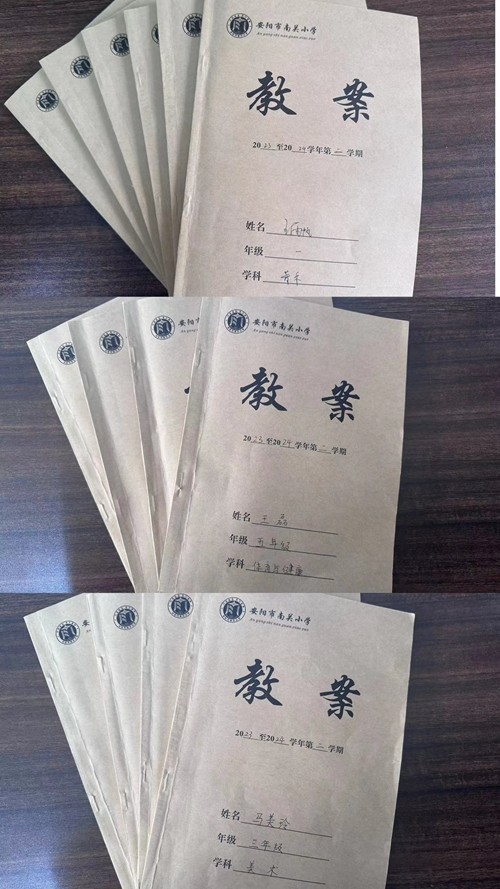 安阳市南关小学
An yang shi nan guan xiao xue
教案
2023至2024学年第二学期
姓名
年级 一
学科 音乐
安阳市南关小学
An yang shi nan guan xiao xue
教案
2023至2024学年第二学期
姓名 王磊
年级 五年级
学科 体育与健康
安阳市南关小学
An yang shi nan guan xiao xue
教案
2023至2024学年第二学期
姓名 马美玲
年级 三年级
学科 美术